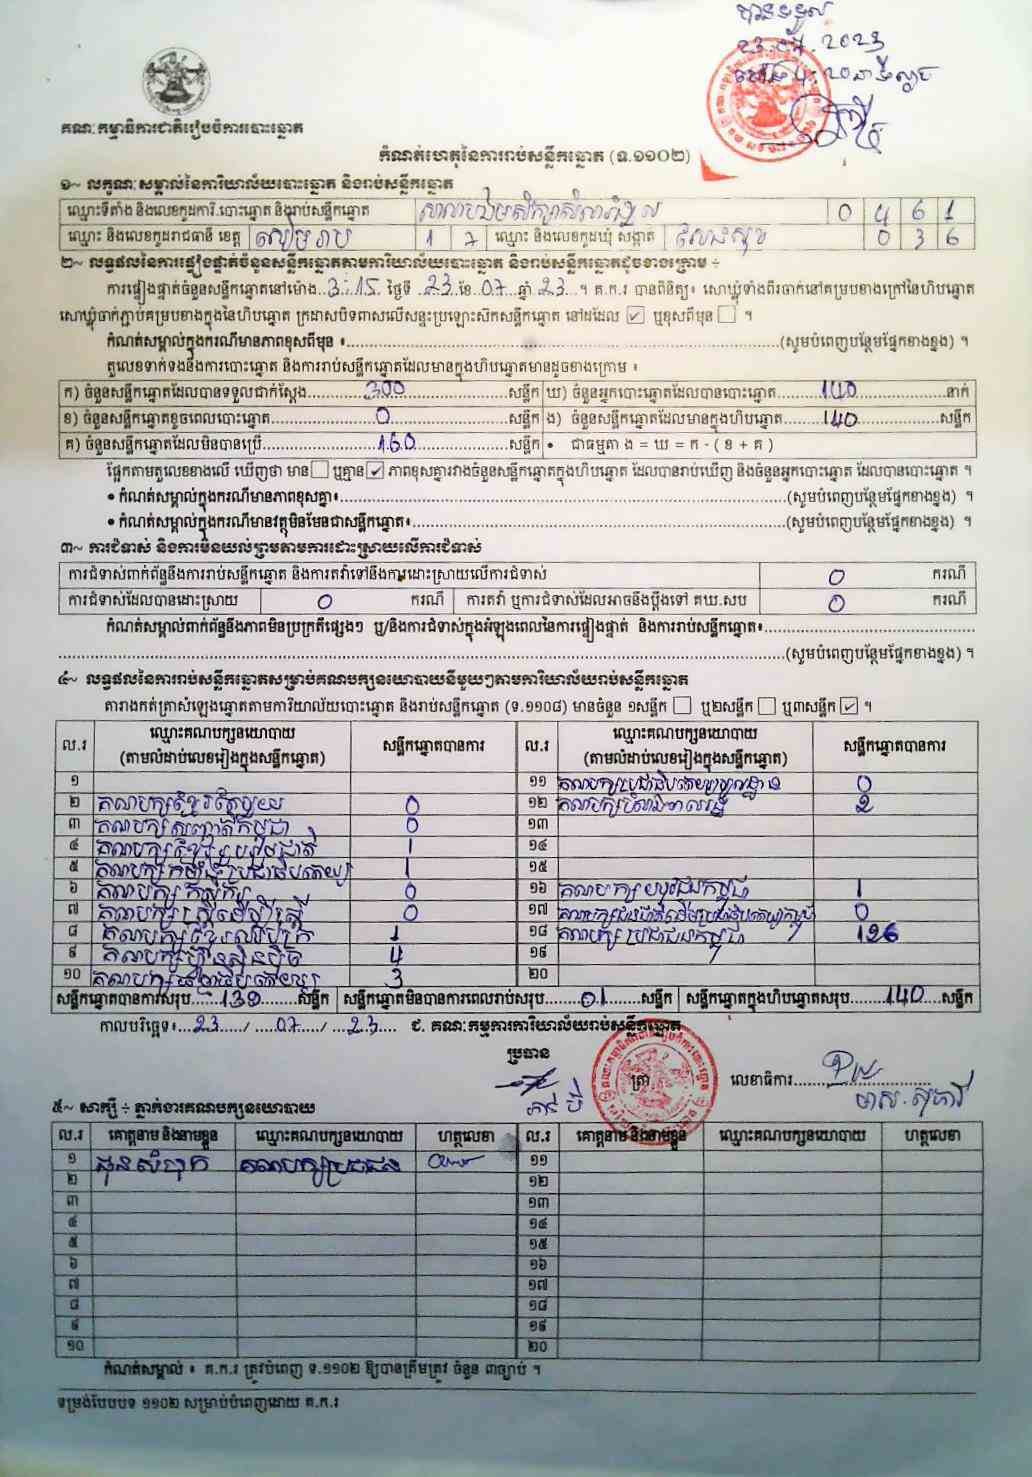 បានទទួល
គណៈកម្មាធិការជាតិរៀបចំការបោះឆ្នោត
កំណត់ហេតុនៃការរាប់សន្លឹកឆ្នោត (ទ.១១០២)
១~ លក្ខណៈសម្គាល់នៃការិយាល័យបោះឆ្នោត និងរាប់សន្លឹកឆ្នោត
ឈ្មោះទីតាំង និងលេខកូដការិ.បោះឆ្នោត និងរាប់សន្លឹកឆ្នោត 0 4 6 1
ឈ្មោះ និងលេខកូដរាជធានី ខេត្ត សៀមរាប 1 7 ឈ្មោះ និងលេខកូដឃុំ សង្កាត់ 0 3 6
២~ លទ្ធផលនៃការផ្ទៀងផ្ទាត់ចំនួនសន្លឹកឆ្នោតតាមការិយាល័យបោះឆ្នោត និងរាប់សន្លឹកឆ្នោតដូចខាងក្រោម ÷
ការផ្ទៀងផ្ទាត់ចំនួនសន្លឹកឆ្នោតនៅម៉ោង 3:15 ថ្ងៃទី 23 ខែ 07 ឆ្នាំ 23 ។ គ.ក.រ បានពិនិត្យ៖ សោឃ្លុំទាំងពីរចាក់នៅគម្របខាងក្រៅនៃហិបឆ្នោត
សោឃ្លុំចាក់ភ្ជាប់គម្របខាងក្នុងនៃហិបឆ្នោត ក្រដាសបិទពាសលើសន្ទះប្រឡោះសិកសន្លឹកឆ្នោត នៅដដែល ☑ ឬខុសពីមុន ☐ ។
កំណត់សម្គាល់ក្នុងករណីមានភាពខុសពីមុន ៖ (សូមបំពេញបន្ថែមផ្នែកខាងខ្នង) ។
តួលេខទាក់ទងនឹងការបោះឆ្នោត និងការរាប់សន្លឹកឆ្នោតដែលមានក្នុងហិបឆ្នោតមានដូចខាងក្រោម ៖
ក) ចំនួនសន្លឹកឆ្នោតដែលបានទទួលជាក់ស្តែង 300 សន្លឹក ឃ) ចំនួនអ្នកបោះឆ្នោតដែលបានបោះឆ្នោត 140 នាក់
ខ) ចំនួនសន្លឹកឆ្នោតខូចពេលបោះឆ្នោត 0 សន្លឹក ង) ចំនួនសន្លឹកឆ្នោតដែលមានក្នុងហិបឆ្នោត 140 សន្លឹក
គ) ចំនួនសន្លឹកឆ្នោតដែលមិនបានប្រើ 160 សន្លឹក • ជាធម្មតា ង = ឃ = ក - ( ខ + គ )
ផ្អែកតាមតួលេខខាងលើ ឃើញថា មាន ☐ ឬគ្មាន ☑ ភាពខុសគ្នារវាងចំនួនសន្លឹកឆ្នោតក្នុងហិបឆ្នោត ដែលបានរាប់ឃើញ និងចំនួនអ្នកបោះឆ្នោត ដែលបានបោះឆ្នោត ។
• កំណត់សម្គាល់ក្នុងករណីមានភាពខុសគ្នា៖ (សូមបំពេញបន្ថែមផ្នែកខាងខ្នង) ។
• កំណត់សម្គាល់ក្នុងករណីមានវត្ថុមិនមែនជាសន្លឹកឆ្នោត៖ (សូមបំពេញបន្ថែមផ្នែកខាងខ្នង) ។
៣~ ការជំទាស់ និងការមិនយល់ព្រមតាមការដោះស្រាយលើការជំទាស់
ការជំទាស់ពាក់ព័ន្ធនឹងការរាប់សន្លឹកឆ្នោត និងការតវ៉ាទៅនឹងការដោះស្រាយលើការជំទាស់ 0 ករណី
ការជំទាស់ដែលបានដោះស្រាយ 0 ករណី ការតវ៉ា ឬការជំទាស់ដែលអាចនឹងប្តឹងទៅ គឃ.សប 0 ករណី
កំណត់សម្គាល់ពាក់ព័ន្ធនឹងភាពមិនប្រក្រតីផ្សេងៗ ឬ/និងការជំទាស់ក្នុងអំឡុងពេលនៃការផ្ទៀងផ្ទាត់ និងការរាប់សន្លឹកឆ្នោត៖
(សូមបំពេញបន្ថែមផ្នែកខាងខ្នង) ។
៤~ លទ្ធផលនៃការរាប់សន្លឹកឆ្នោតសម្រាប់គណបក្សនយោបាយនីមួយៗតាមការិយាល័យរាប់សន្លឹកឆ្នោត
តារាងកត់ត្រាសំឡេងឆ្នោតតាមការិយាល័យបោះឆ្នោត និងរាប់សន្លឹកឆ្នោត (ទ.១១០៨) មានចំនួន ១សន្លឹក ☐ ឬ២សន្លឹក ☐ ឬ៣សន្លឹក ☑ ។
ល.រ ឈ្មោះគណបក្សនយោបាយ (តាមលំដាប់លេខរៀងក្នុងសន្លឹកឆ្នោត) សន្លឹកឆ្នោតបានការ ល.រ ឈ្មោះគណបក្សនយោបាយ (តាមលំដាប់លេខរៀងក្នុងសន្លឹកឆ្នោត) សន្លឹកឆ្នោតបានការ
១ ១១ 0
២ គណបក្សខ្មែរតែមួយ 0 ១២ 2
៣ គណបក្សសញ្ជាតិកម្ពុជា 0 ១៣
៤ គណបក្សខ្មែររួបរួមជាតិ 1 ១៤
៥ គណបក្សកម្លាំងប្រជាធិបតេយ្យ 1 ១៥
៦ គណបក្សកសិករ 0 ១៦ គណបក្សយុវជនកម្ពុជា 1
៧ គណបក្សស្ត្រីដើម្បីស្ត្រី 0 ១៧ 0
៨ គណបក្សខ្មែរអភិរក្ស 1 ១៨ គណបក្សប្រជាជនកម្ពុជា 126
៩ គណបក្សហ្វ៊ុនស៊ិនប៉ិច 4 ១៩
១០ 3 ២០
សន្លឹកឆ្នោតបានការសរុប 139 សន្លឹក សន្លឹកឆ្នោតមិនបានការពេលរាប់សរុប 01 សន្លឹក សន្លឹកឆ្នោតក្នុងហិបឆ្នោតសរុប 140 សន្លឹក
កាលបរិច្ឆេទ៖ 23 / 07 / 23 ជ. គណៈកម្មការការិយាល័យរាប់សន្លឹកឆ្នោត
ប្រធាន ត្រា លេខាធិការ
៥~ សាក្សី ÷ ភ្នាក់ងារគណបក្សនយោបាយ
ល.រ គោត្តនាម និងនាមខ្លួន ឈ្មោះគណបក្សនយោបាយ ហត្ថលេខា ល.រ គោត្តនាម និងនាមខ្លួន ឈ្មោះគណបក្សនយោបាយ ហត្ថលេខា
១ គណបក្សប្រជាជន ១១
២ ១២
៣ ១៣
៤ ១៤
៥ ១៥
៦ ១៦
៧ ១៧
៨ ១៨
៩ ១៩
១០ ២០
កំណត់សម្គាល់ ៖ គ.ក.រ ត្រូវបំពេញ ទ.១១០២ ឱ្យបានត្រឹមត្រូវ ចំនួន ៣ច្បាប់ ។
ទម្រង់បែបបទ ១១០២ សម្រាប់បំពេញដោយ គ.ក.រ